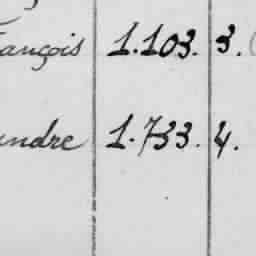 ançois 1.103. 3.
andre 1.733. 4.